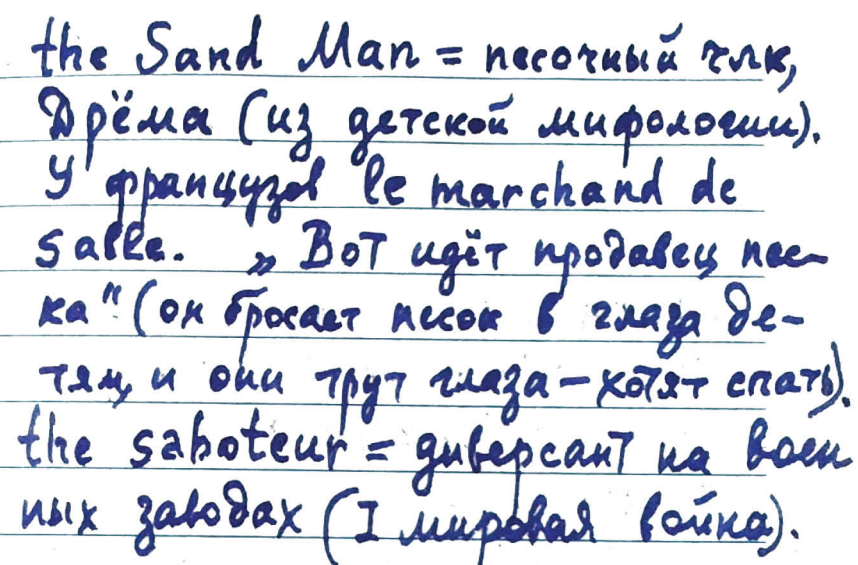 the Sand Man = песочный члк,
Дрёма (из детской мифологии).
У французов le marchand de
sable. „Вот идёт продавец пес-
ка" (он бросает песок в глаза де-
тям, и они трут глаза – хотят спать).
the saboteur = диверсант на воен
ных заводах (I мировая война).